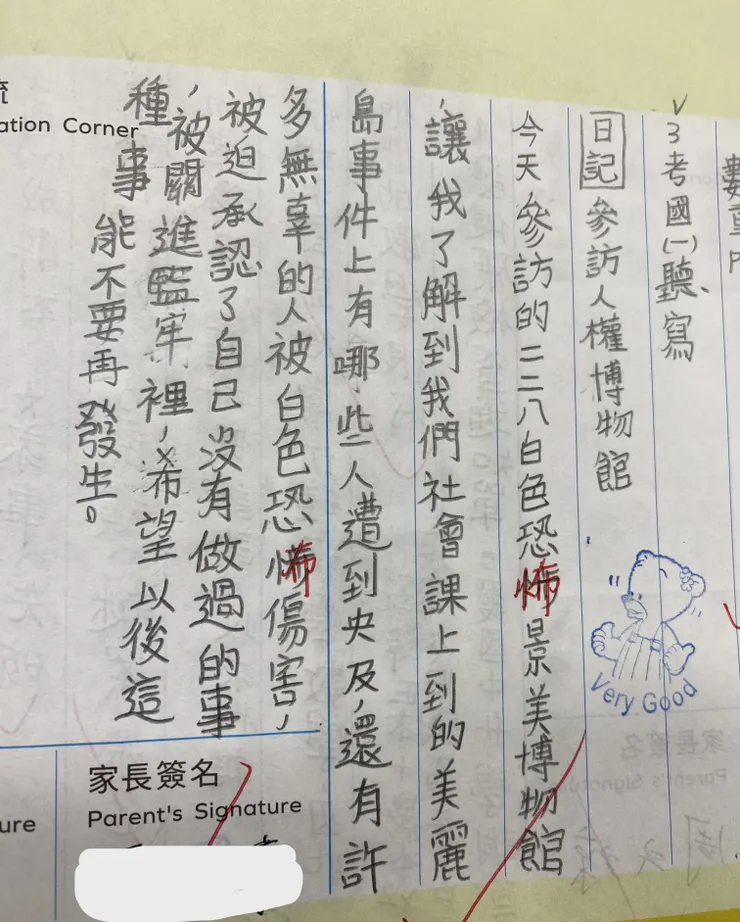 3考國(一)聽寫
日記 參訪人權博物館
今天參訪的二二八白色恐怖景美博物館
,讓我了解到我們社會課上到的美麗
島事件上有哪些人遭到央及,還有許
多無辜的人被白色恐怖傷害,
被迫承認了自己沒有做過的事
,被關進監牢裡,希望以後這
種事能不要再發生。
Very Good
ation Corner
家長簽名
Parent's Signature
ure